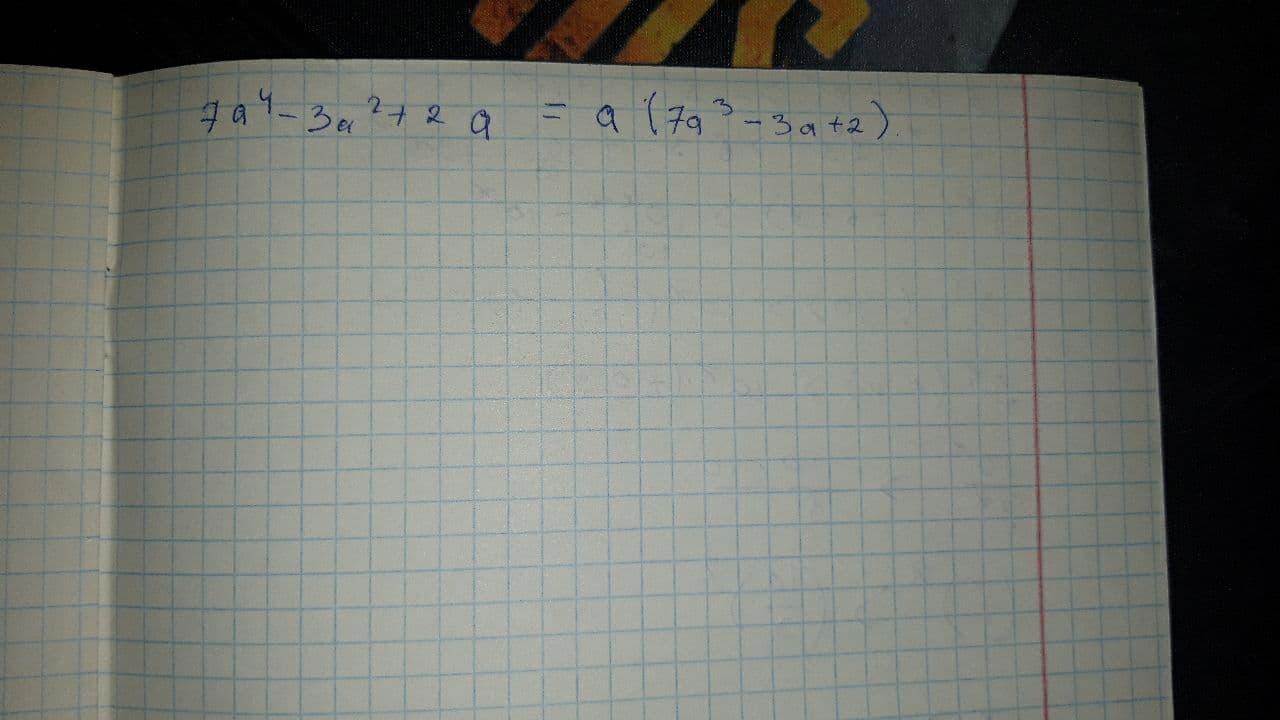 7a⁴ - 3a² + 2a = a (7a³ - 3a + 2).